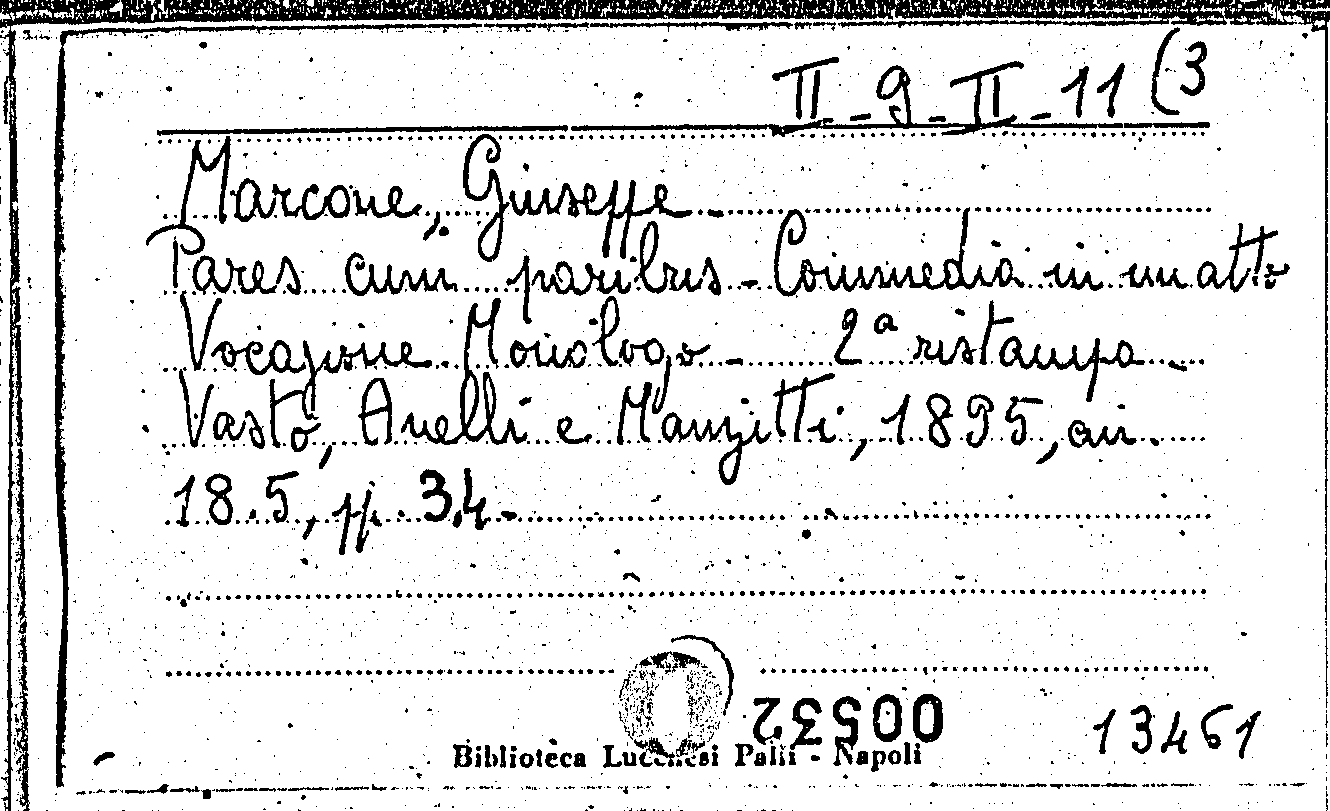 II-9-II-11 (3
Marcone, Giuseppe -
Pares cum paribus - Commedia in un atto
Vocazione. Monologo - 2ª ristampa -
Vasto, Anelli e Manzitti, 1895, cm.
18.5, pp. 34. -
00532
13461
Biblioteca Lucchesi Palli - Napoli